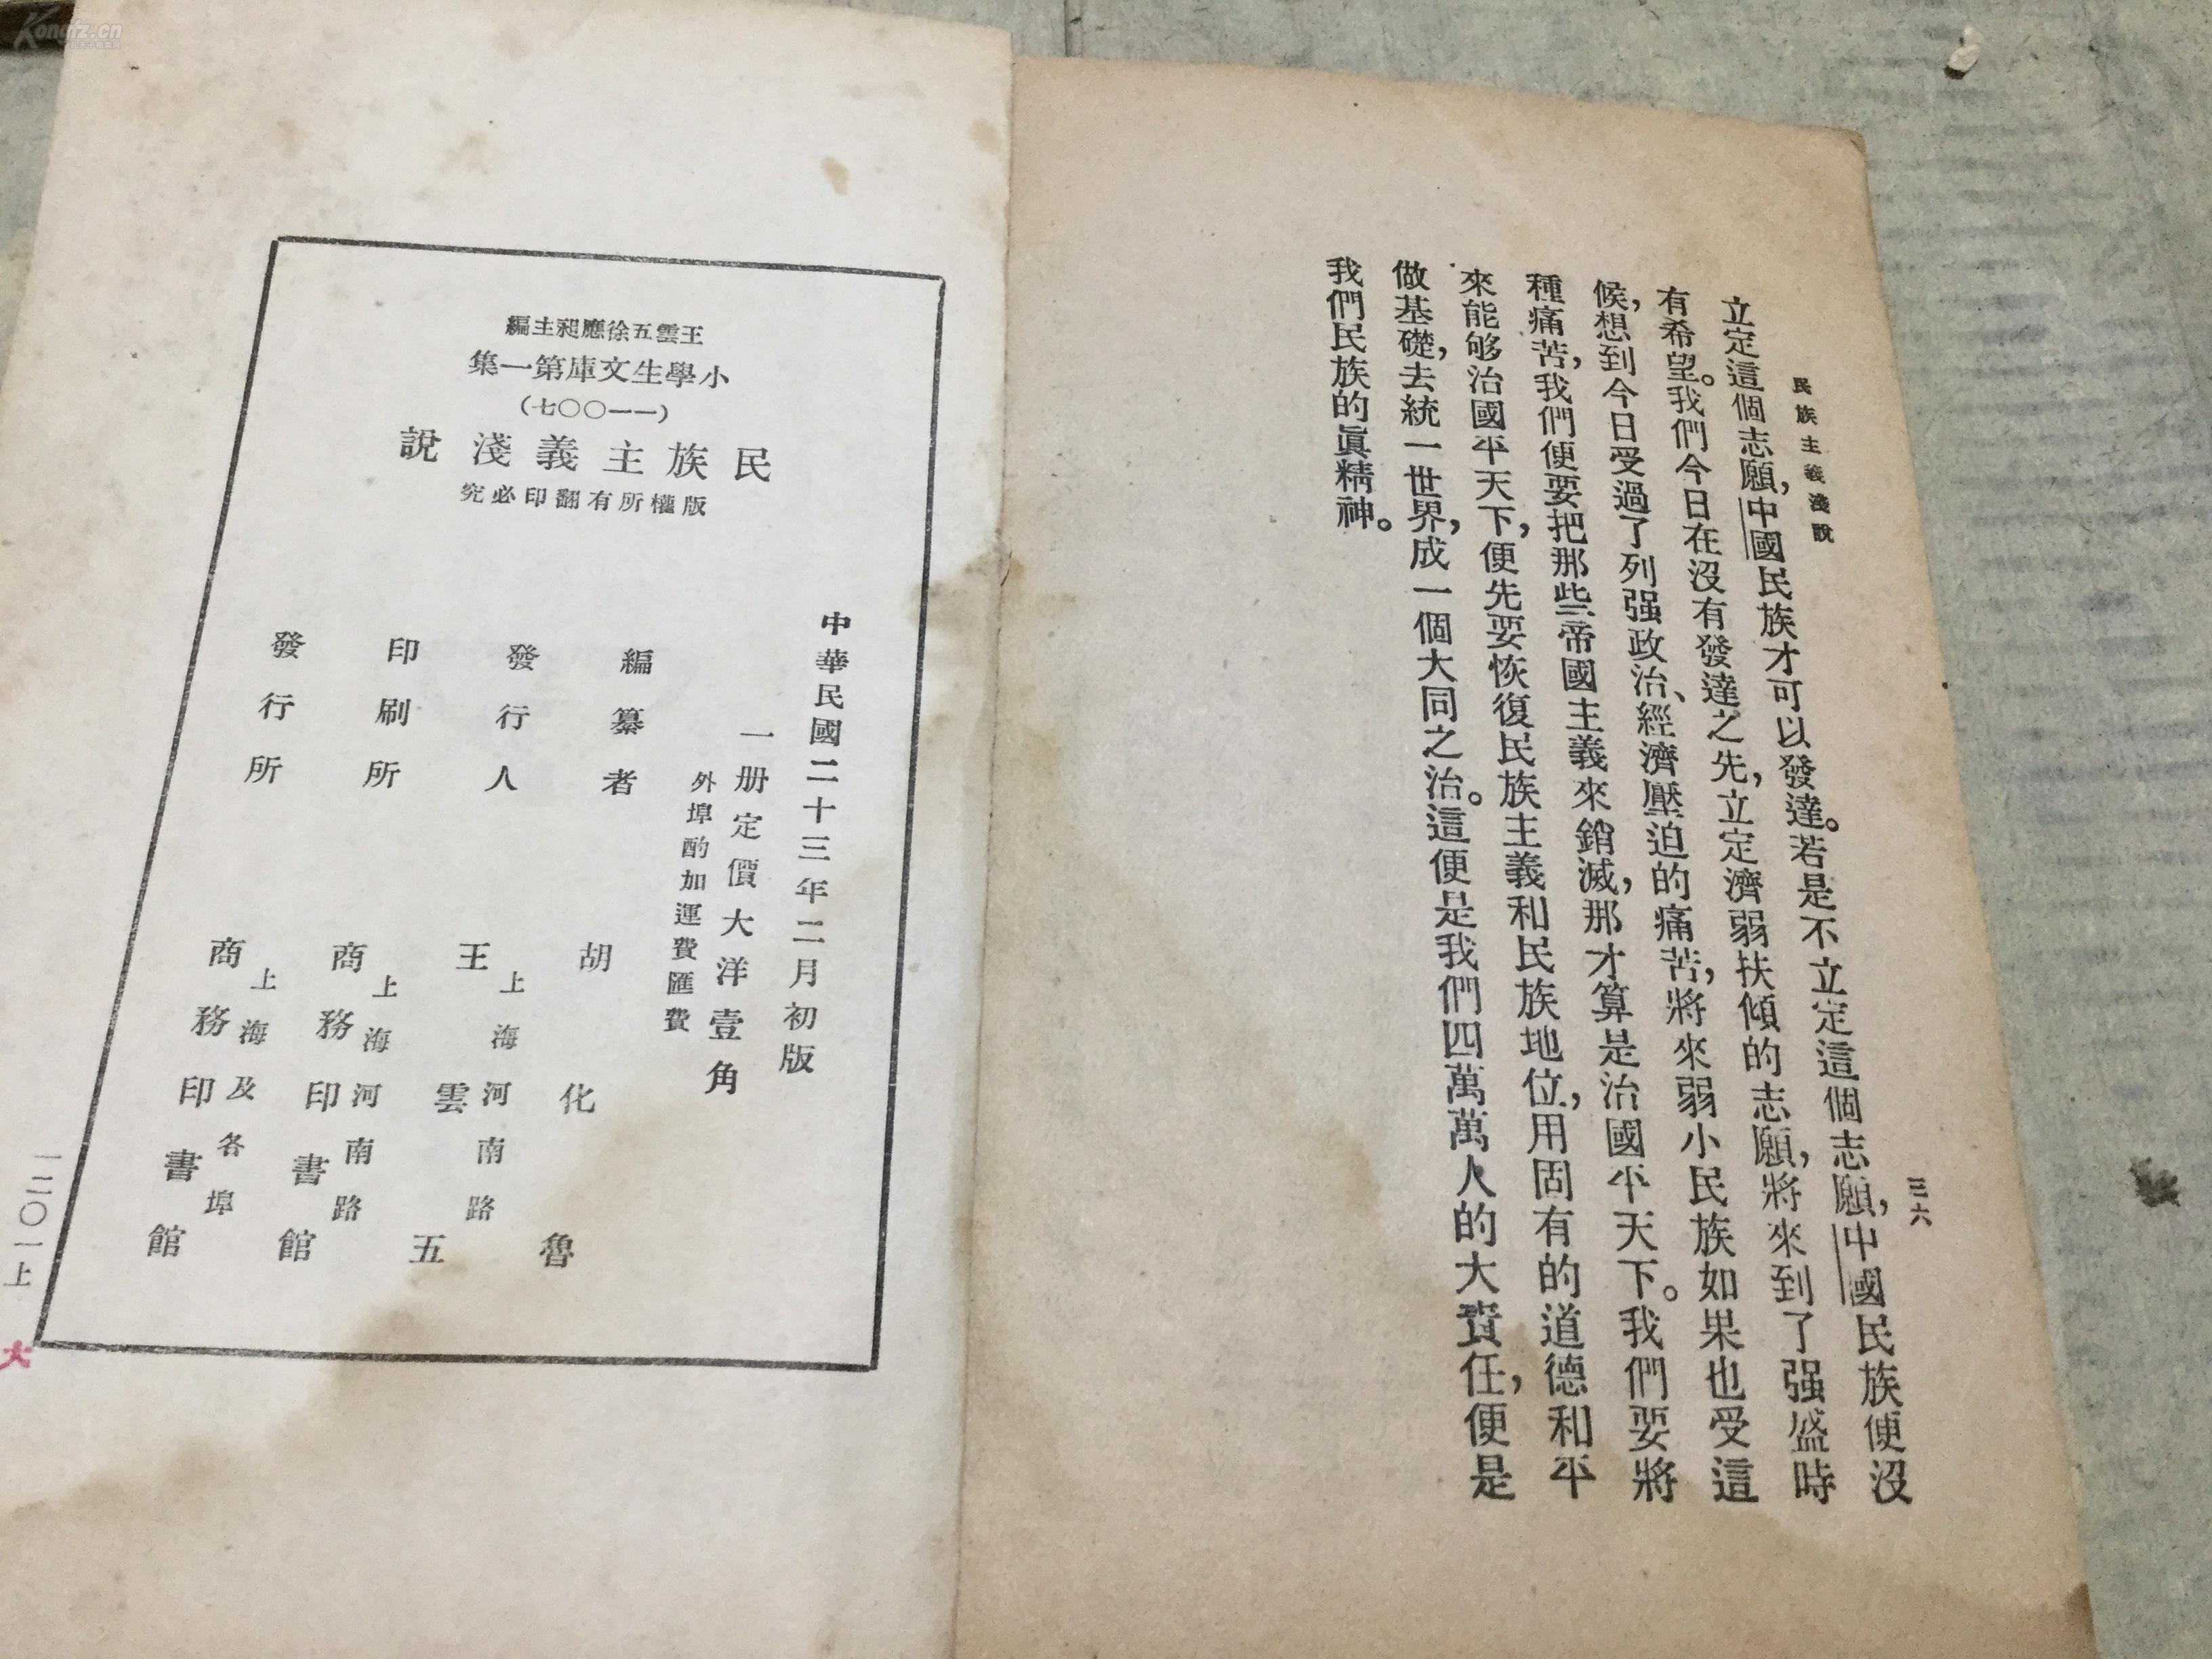 民族主義淺說
三六
立定這個志願，中國民族才可以發達。若是不立定這個志願，中國民族便沒
有希望。我們今日在沒有發達之先，立定濟弱扶傾的志願，將來到了强盛時
候，想到今日受過了列强政治、經濟壓迫的痛苦，將來弱小民族如果也受這
種痛苦，我們便要把那些帝國主義來銷滅，那才算是治國平天下。我們要將
來能够治國平天下，便先要恢復民族主義和民族地位，用固有的道德和平
做基礎，去統一世界，成一個大同之治。這便是我們四萬萬人的大責任，便是
我們民族的眞精神。
王雲五徐應昶主編
小學生文庫第一集
（一一〇〇七）
民族主義淺說
版權所有翻印必究
中華民國二十三年二月初版
一册定價大洋壹角
外埠酌加運費匯費
編纂者 胡化魯
發行人 上海河南路 王雲五
印刷所 上海河南路 商務印書館
發行所 上海及各埠 商務印書館
一二〇一上
大
Kongfz.cn